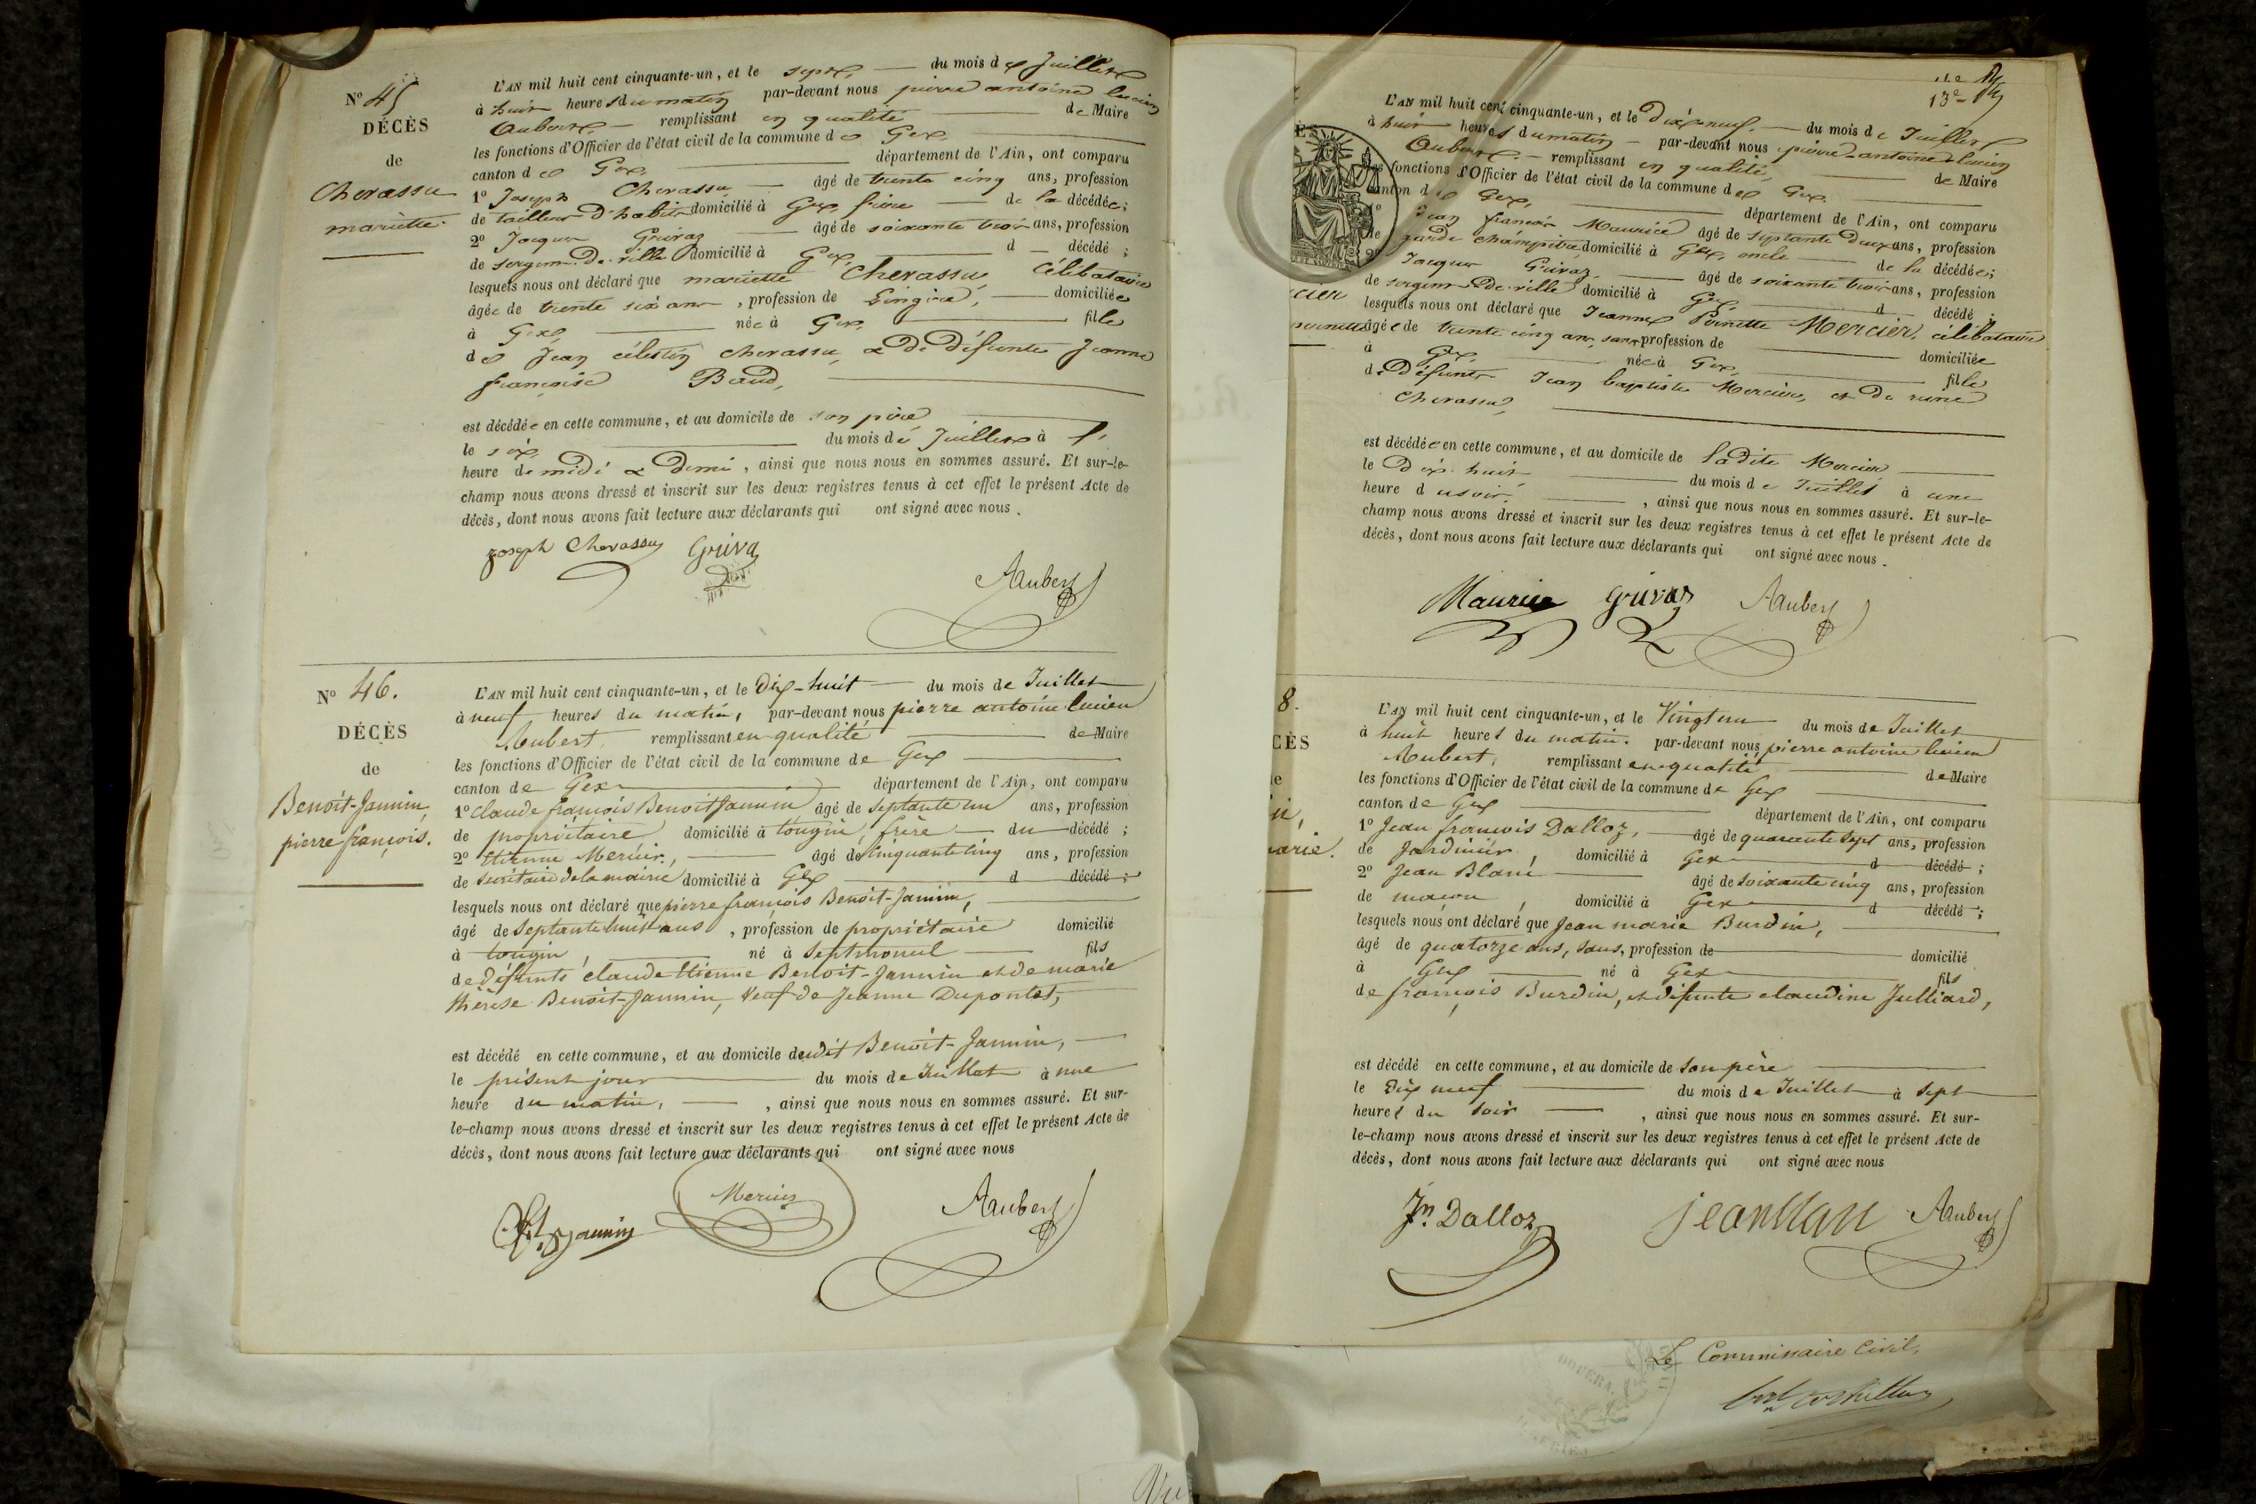 N° 45
DÉCÈS
de
Chevassu
mariette.
L'AN mil huit cent cinquante-un, et le sept, du mois de Juillet
à huit heures du matin par-devant nous pierre antoine lucien
Aubert, remplissant en qualité de Maire
les fonctions d'Officier de l'état civil de la commune de Gex,
canton de Gex, département de l'Ain, ont comparu
1° Joseph Chevassu âgé de trente cinq ans, profession
de tailleur d'habits domicilié à Gex, frère de la décédée;
2° Jacques Grivaz âgé de soixante trois ans, profession
de sergent de ville domicilié à Gex, d décédé ;
lesquels nous ont déclaré que mariette Chevassu, célibataire
âgée de trente six ans, profession de Lingère, domiciliée
à Gex, née à Gex, fille
de Jean célestin chevassu, & de défunte Jeanne
françoise Baud,
est décédée en cette commune, et au domicile de son père
le six du mois de Juillet à l'
heure de midi & demi, ainsi que nous nous en sommes assuré. Et sur-le-
champ nous avons dressé et inscrit sur les deux registres tenus à cet effet le présent Acte de
décès, dont nous avons fait lecture aux déclarants qui ont signé avec nous.
Joseph Chevassu Griva
Aubert
N° 46.
DÉCÈS
de
Benoît-Jannin,
pierre françois.
L'AN mil huit cent cinquante-un, et le Dix-huit du mois de Juillet
à neuf heures du matin, par-devant nous pierre antoine lucien
Aubert, remplissant en qualité de Maire
les fonctions d'Officier de l'état civil de la commune de Gex
canton de Gex département de l'Ain, ont comparu
1° claude françois Benoit Jannin âgé de septante un ans, profession
de propriétaire domicilié à tougin, frère du décédé ;
2° Etienne Mercier, âgé de cinquante cinq ans, profession
de secrétaire de la mairie domicilié à Gex d décédé ;
lesquels nous ont déclaré que pierre françois Benoît-Jannin,
âgé de septante huit ans, profession de propriétaire domicilié
à tougin, né à Septmoncel fils
de défunts claude Etienne Benoit-Jannin et de marie
thérèse Benoit-Jannin, veuf de Jeanne Dupontet,
est décédé en cette commune, et au domicile dudit Benoit-Jannin,
le présent jour du mois de Juillet à une
heure du matin, ainsi que nous nous en sommes assuré. Et sur-
le-champ nous avons dressé et inscrit sur les deux registres tenus à cet effet le présent Acte de
décès, dont nous avons fait lecture aux déclarants qui ont signé avec nous
Jannin Mercier Aubert
13e
L'AN mil huit cent cinquante-un, et le dix neuf. du mois de Juillet
à huit heures du matin par-devant nous pierre antoine lucien
Aubert. remplissant en qualité, de Maire
les fonctions d'Officier de l'état civil de la commune de Gex,
canton de Gex, département de l'Ain, ont comparu
1° Jean françois Maurice âgé de septante deux ans, profession
de garde champêtre domicilié à Gex, oncle de la décédée;
2° Jacques Grivaz âgé de soixante trois ans, profession
de sergent de ville domicilié à Gex d décédé ;
lesquels nous ont déclaré que Jeanne Pernette Mercier, célibataire
âgée de trente cinq ans, sans profession de domiciliée
à Gex, née à Gex, fille
de défunt Jean baptiste Mercier, et de
Chevassu,
est décédée en cette commune, et au domicile de ladite Mercier
le dix huit du mois de Juillet à une
heure du soir, ainsi que nous nous en sommes assuré. Et sur-le-
champ nous avons dressé et inscrit sur les deux registres tenus à cet effet le présent Acte de
décès, dont nous avons fait lecture aux déclarants qui ont signé avec nous.
Maurice Grivaz Aubert
8.
CÈS
arie.
L'AN mil huit cent cinquante-un, et le Vingt un du mois de Juillet
à huit heures du matin. par-devant nous pierre antoine lucien
Aubert, remplissant en qualité de Maire
les fonctions d'Officier de l'état civil de la commune de Gex
canton de Gex département de l'Ain, ont comparu
1° Jean françois Dalloz, âgé de quarante sept ans, profession
de Jardinier, domicilié à Gex d décédé ;
2° Jean Blanc âgé de soixante cinq ans, profession
de maçon, domicilié à Gex d décédé ;
lesquels nous ont déclaré que Jean marie Burdin,
âgé de quatorze ans, sans, profession de domicilié
à Gex né à Gex fils
de françois Burdin, et défunte claudine Julliard,
est décédé en cette commune, et au domicile de son père
le Dix neuf du mois de Juillet à sept
heures du soir, ainsi que nous nous en sommes assuré. Et sur-
le-champ nous avons dressé et inscrit sur les deux registres tenus à cet effet le présent Acte de
décès, dont nous avons fait lecture aux déclarants qui ont signé avec nous
Jn. Dalloz Jean Blan Aubert
Le Commissaire Civil,